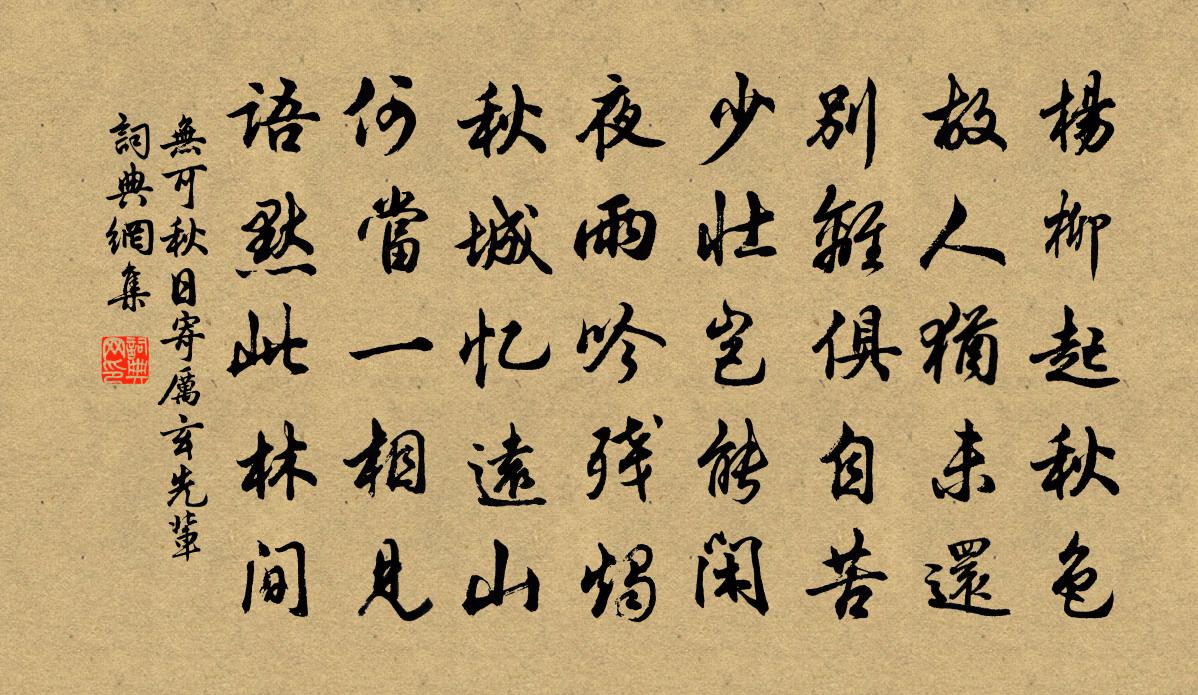 楊柳起秋色
故人猶未還
別離俱自苦
少壯豈能閑
夜雨吟残燭
秋城忆遠山
何當一相見
語默此林間
無可秋日寄厲玄先輩
詞典網集
詞典网印